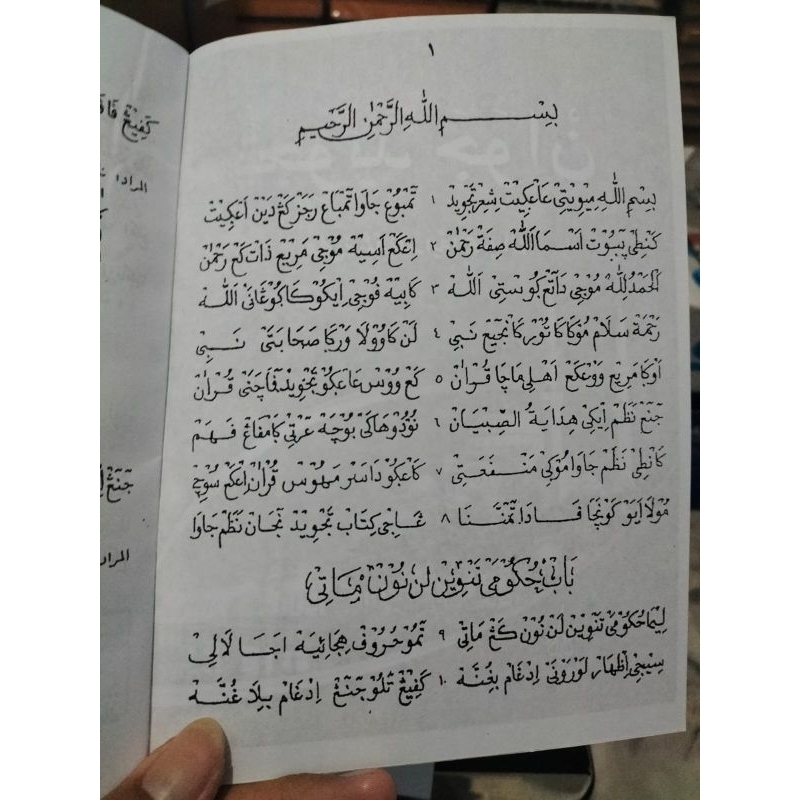 ١
بِسْمِ اللّٰهِ الرَّحْمٰنِ الرَّحِيْمِ
بِسْمِ اللّٰهِ مِيْوِيْتِيْ عَاعِڮِيْتْ شِعِرْ تَجْوِيْدْ ١ تَمْبُوْعْ جَاوَا تَمْبَاڠْ رَجَزْ كَڠْ دَيْنْ اَڠڮِيْتْ
كَنْطِيْ پَبُوْتْ اَسْمَا اَللّٰهْ صِفَةْ رَحْمٰنْ ٢ اِڠْكَڠْ اَسِيْهْ مُوْجِيْ مَرِيْڠْ ذَاتْ كَڠْ رَحْمٰنْ
اَلْحَمْدُ لِلّٰهْ مُوْجِيْ دَاتَڠْ ڮُوْسْتِيْ اَللّٰهْ ٣ كَابَيْهْ فُوْجِيْ اِيْكُوْ كَاڮُوْڠَانَيْ اَللّٰهْ
رَحْمَةْ سَلَامْ مُوْڮَا كَاتُوْرْ كَانْجَيْڠْ نَبِيْ ٤ لَنْ كَاوُوْلَا وَرْڮَا صَحَابَتَيْ نَبِيْ
اَوْڮَا مَرِيْڠْ وَوْڠْكَڠْ اَهْلِيْ مَاچَا قُرْاٰنْ ٥ كَڠْ وُوْسْ عَاعِڮُوْ تَجْوِيْدْ فَاچَنَيْ قُرْاٰنْ
جَنَڠْ نَظَمْ اِيْكِيْ هِدَايَةُ الصِّبْيَانْ ٦ نُوْدُوْهَاكَيْ بُوْچَهْ عَرْتِيْ ڮَامْفَاڠْ فَهَمْ
كَانْطِيْ نَظَمْ جَاوَا مُوْڮِيْ مَنْفَعَتِيْ ٧ كَاعِڮُوْ دَاسَرْ مَهُوْسْ قُرْاٰنْ اِڠْكَڠْ سُوْچِيْ
مُوْلَا اَيَوْ كَوْنْچَا فَادَا تَمَنَّنَا ٨ عَاجِيْ كِتَابْ تَجْوِيْدْ نَجَانْ نَظَمْ جَاوَا
بَابْ حُكُوْمَيْ تَنْوِيْنْ لَنْ نُوْنْ مَاتِيْ
لِيْمَا حُكُوْمَيْ تَنْوِيْنْ لَنْ نُوْنْ كَڠْ مَاتِيْ ٩ تَمُوْ حُرُوْفْ هِجَائِيَهْ اَجَا لَالِيْ
سِيْجِيْ اِظْهَارْ لَوْرَوْنَيْ اِدْغَامْ بِغُنَّهْ ١٠ كَفِيْڠْ تَلُوْ جَنَڠْ اِدْغَامْ بِلَا غُنَّهْ
كَفِيْڠْ
المراد
جَنَڠْ
المراد